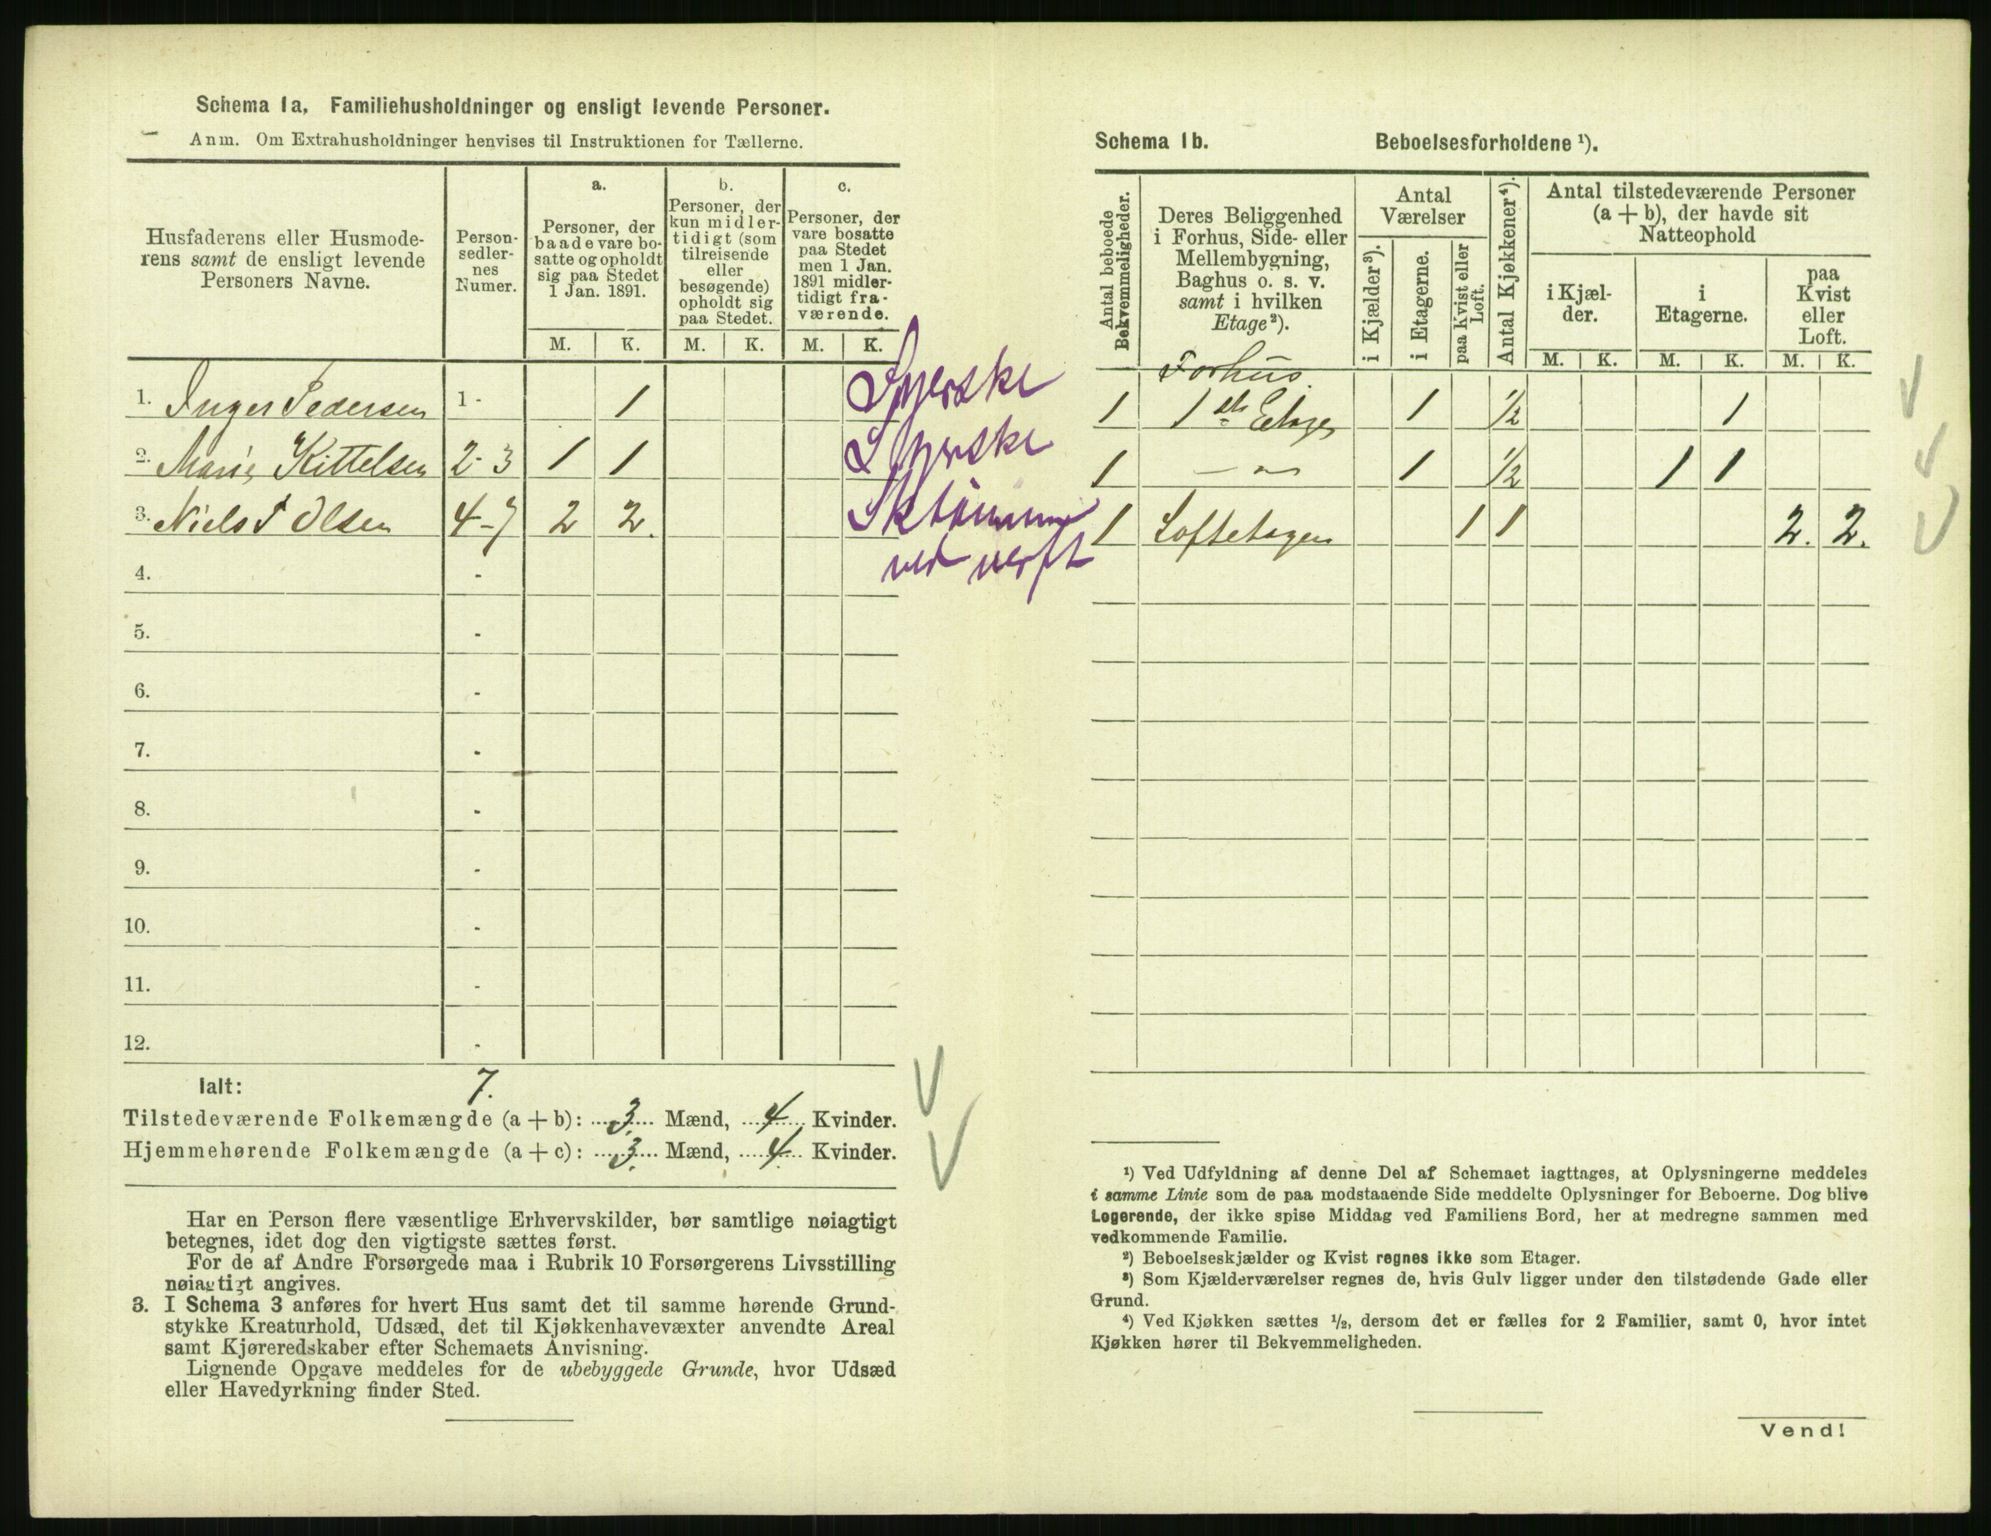 Schema 1a. Familiehusholdninger og ensligt levende Personer.
Anm. Om Extrahusholdninger henvises til Instruktionen for Tællerne.
Husfaderens eller Husmoderens samt de ensligt levende Personers Navne.
Personsedlernes Numer.
a. Personer, der baade vare bosatte og opholdt sig paa Stedet 1 Jan. 1891.
b. Personer, der kun midlertidigt (som tilreisende eller besøgende) opholdt sig paa Stedet.
c. Personer, der vare bosatte paa Stedet men 1 Jan. 1891 midlertidigt fraværende.
M. K. M. K. M. K.
1. Inger Pedersen 1 - 1 Syerske
2. Marie Kittelsen 2-3 1 1 Syerske
3. Niels T Olsen 4-7 2 2. Sktömm
ved verft
4. -
5. -
6. -
7. -
8. -
9. -
10. -
11. -
12. -
Ialt: 7.
Tilstedeværende Folkemængde (a + b): 3 Mænd, 4 Kvinder.
Hjemmehørende Folkemængde (a + c): 3 Mænd, 4 Kvinder.
Har en Person flere væsentlige Erhvervskilder, bør samtlige nøiagtigt
betegnes, idet dog den vigtigste sættes først.
For de af Andre Forsørgede maa i Rubrik 10 Forsørgerens Livsstilling
nøiagtigt angives.
3. I Schema 3 anføres for hvert Hus samt det til samme hørende Grund-
stykke Kreaturhold, Udsæd, det til Kjøkkenhavevæxter anvendte Areal
samt Kjøreredskaber efter Schemaets Anvisning.
Lignende Opgave meddeles for de ubebyggede Grunde, hvor Udsæd
eller Havedyrkning finder Sted.
Schema 1b. Beboelsesforholdene ¹).
Antal beboede Bekvemmeligheder.
Deres Beliggenhed i Forhus, Side- eller Mellembygning, Baghus o. s. v. samt i hvilken Etage²).
Antal Værelser
i Kjælder³).
i Etagerne.
paa Kvist eller Loft.
Antal Kjøkkener⁴).
Antal tilstedeværende Personer (a + b), der havde sit Natteophold
i Kjælder.
i Etagerne.
paa Kvist eller Loft.
M. K. M. K. M. K.
Forhus.
1 1ste Etage 1 ½ 1
1 — " — 1 ½ 1 1
1 Loftetagen 1 1 2. 2.
¹) Ved Udfyldning af denne Del af Schemaet iagttages, at Oplysningerne meddeles
i samme Linie som de paa modstaaende Side meddelte Oplysninger for Beboerne. Dog blive
Logerende, der ikke spise Middag ved Familiens Bord, her at medregne sammen med
vedkommende Familie.
²) Beboelseskjælder og Kvist regnes ikke som Etager.
³) Som Kjælderværelser regnes de, hvis Gulv ligger under den tilstødende Gade eller
Grund.
⁴) Ved Kjøkken sættes ½, dersom det er fælles for 2 Familier, samt 0, hvor intet
Kjøkken hører til Bekvemmeligheden.
Vend!